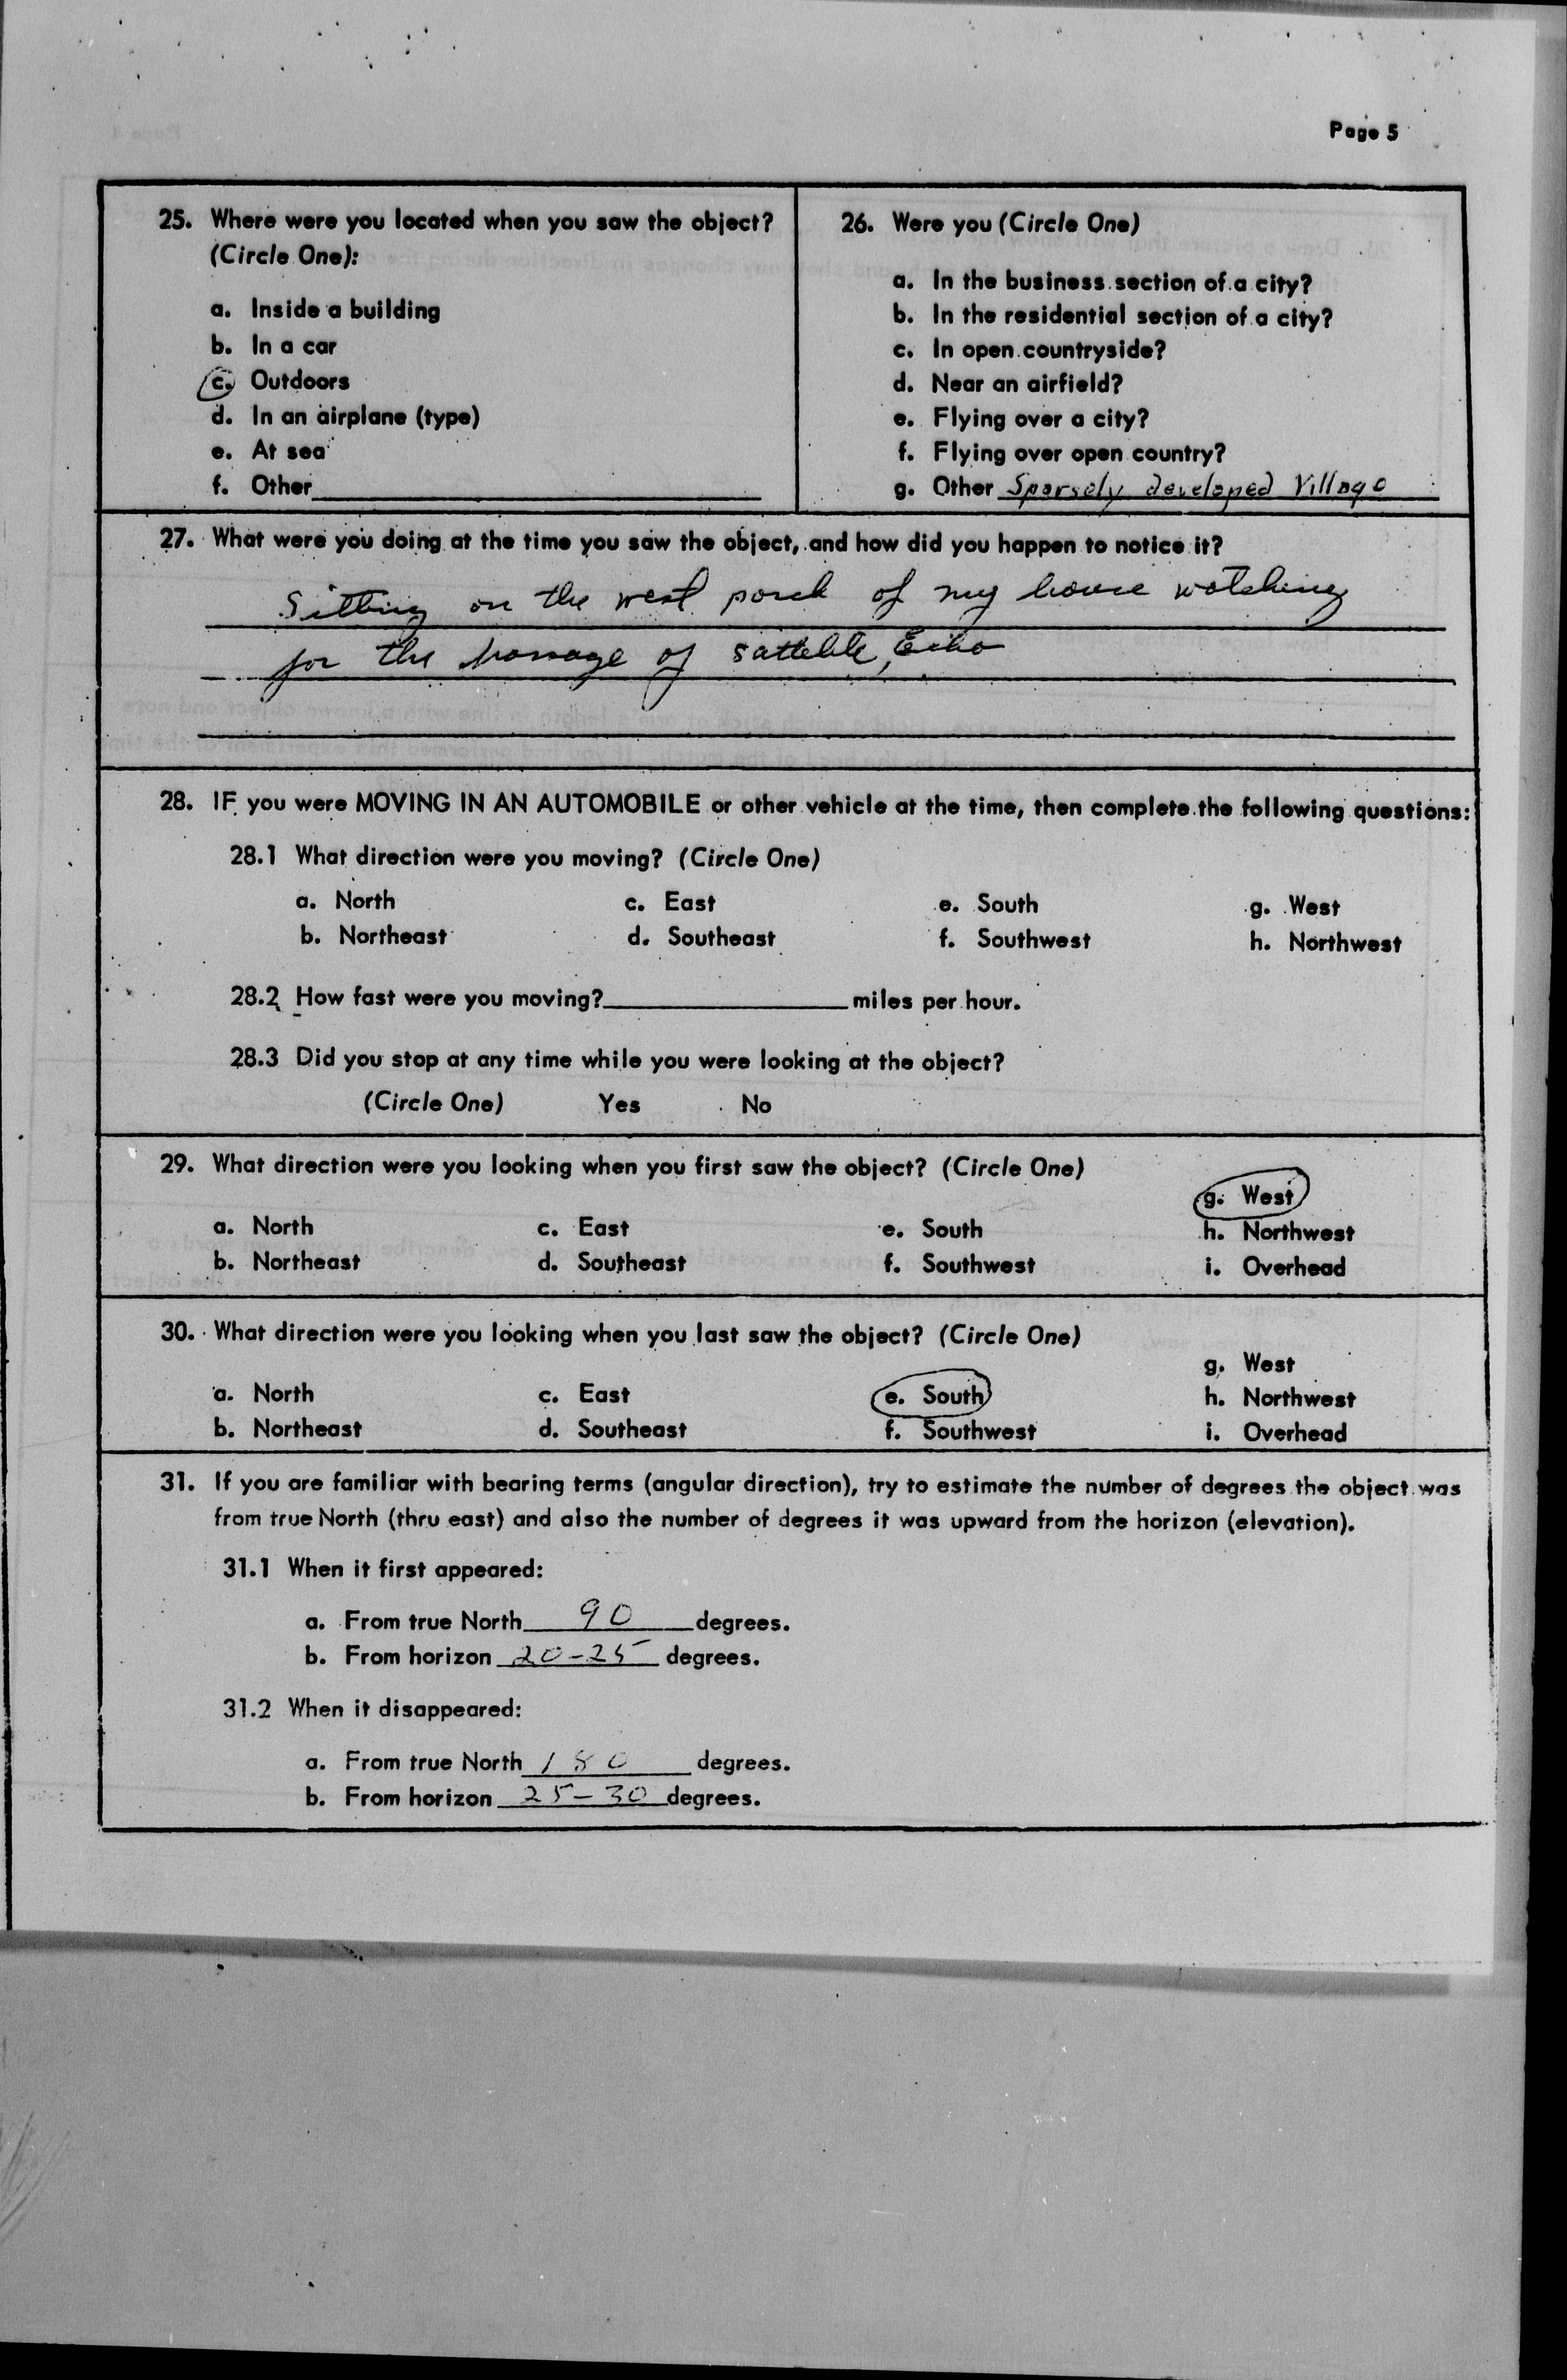 Page 5
25. Where were you located when you saw the object?
(Circle One):
a. Inside a building
b. In a car
c. Outdoors
d. In an airplane (type)
e. At sea
f. Other
26. Were you (Circle One)
a. In the business section of a city?
b. In the residential section of a city?
c. In open countryside?
d. Near an airfield?
e. Flying over a city?
f. Flying over open country?
g. Other Sparsely developed Village
27. What were you doing at the time you saw the object, and how did you happen to notice it?
Sitting on the west porch of my house watching
for the passage of sattelite, Echo
28. IF you were MOVING IN AN AUTOMOBILE or other vehicle at the time, then complete the following questions:
28.1 What direction were you moving? (Circle One)
a. North c. East e. South g. West
b. Northeast d. Southeast f. Southwest h. Northwest
28.2 How fast were you moving? miles per hour.
28.3 Did you stop at any time while you were looking at the object?
(Circle One) Yes No
29. What direction were you looking when you first saw the object? (Circle One)
g. West
a. North c. East e. South h. Northwest
b. Northeast d. Southeast f. Southwest i. Overhead
30. What direction were you looking when you last saw the object? (Circle One)
g. West
a. North c. East e. South h. Northwest
b. Northeast d. Southeast f. Southwest i. Overhead
31. If you are familiar with bearing terms (angular direction), try to estimate the number of degrees the object was
from true North (thru east) and also the number of degrees it was upward from the horizon (elevation).
31.1 When it first appeared:
a. From true North 90 degrees.
b. From horizon 20-25 degrees.
31.2 When it disappeared:
a. From true North 180 degrees.
b. From horizon 25-30 degrees.